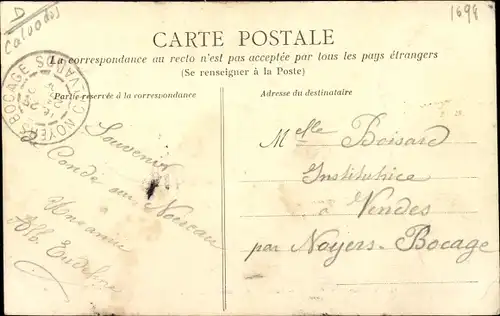 D
Calvados
1698
CARTE POSTALE
La correspondance au recto n'est pas acceptée par tous les pays étrangers
(Se renseigner à la Poste)
Partie réservée à la correspondance
Adresse du destinataire
NOYERS BOCAGE CALVADOS
Souvenir
Condé sur Noireau
Une amie
Melle Boisard
Institutrice
à Vendes
par Noyers-Bocage